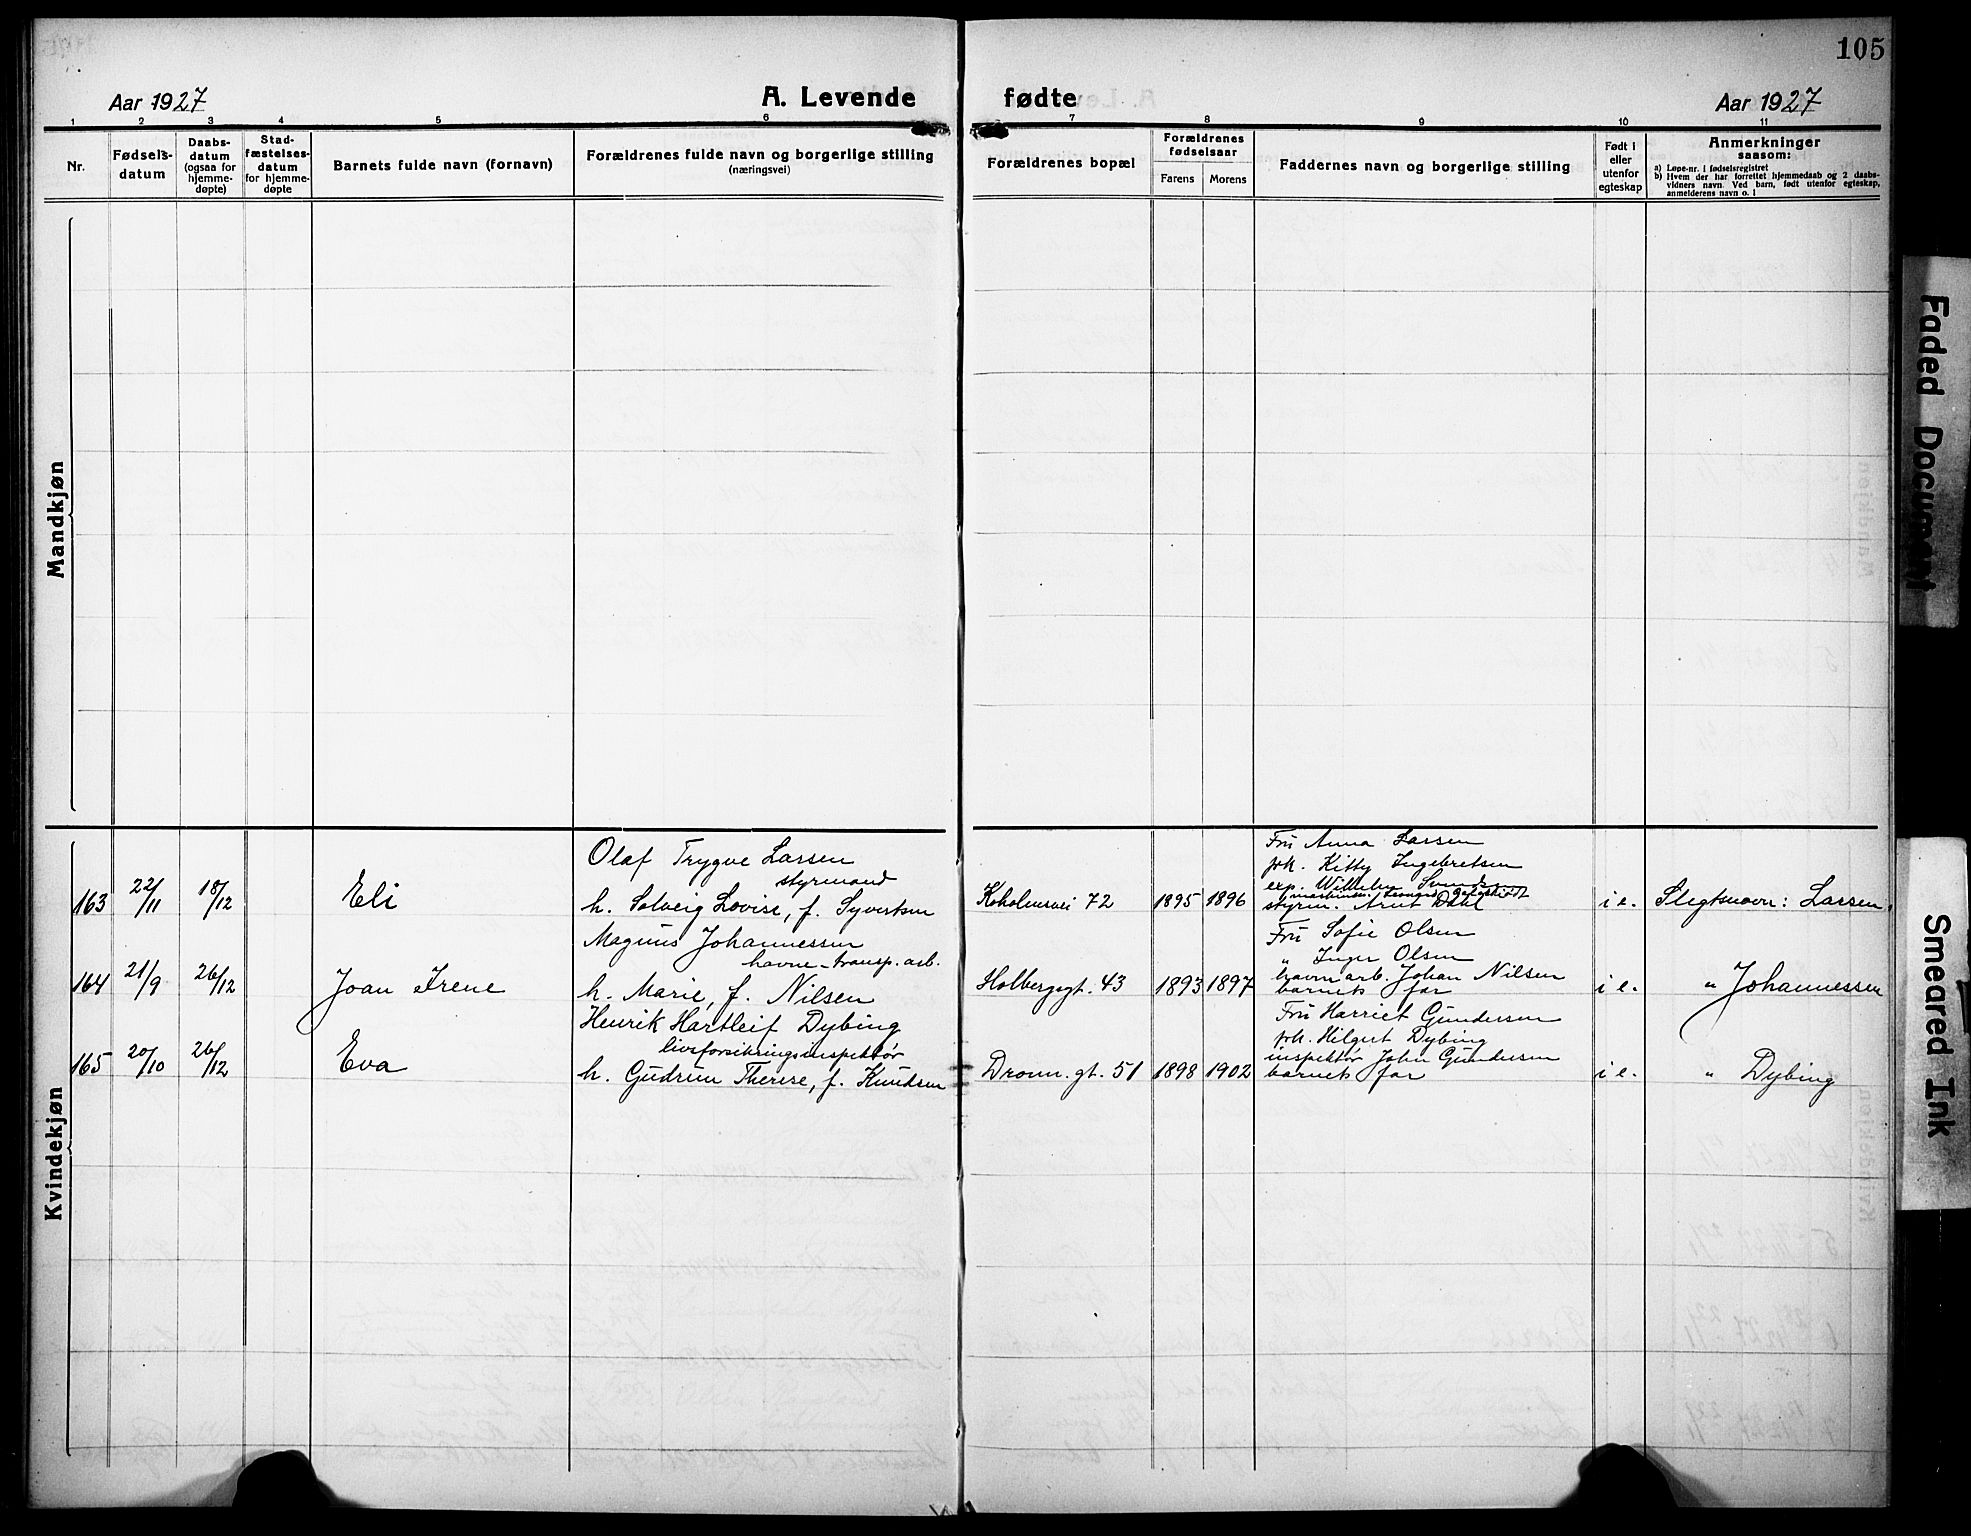 105
Aar 1927
A. Levende fødte
Aar 1927
1 2 3 4 5 6 7 8 9 10 11
Nr.
Fødsels-
datum
Daabs-
datum
(ogsaa for
hjemme-
døpte)
Stad-
fæstelses-
datum
for hjemme-
døpte
Barnets fulde navn (fornavn)
Forældrenes fulde navn og borgerlige stilling
(næringsvei)
Forældrenes bopæl
Forældrenes
fødselsaar
Farens Morens
Faddernes navn og borgerlige stilling
Født i
eller
utenfor
egteskap
Anmerkninger
saasom:
a) Løpe-nr. i fødselsregistret
b) Hvem der har forrettet hjemmedaab og 2 daabs-
vidners navn. Ved barn, født utenfor egteskap,
anmelderens navn o. l
Mandkjøn
Kvindekjøn
163 22/11 18/12 Eli
Olaf Trygve Larsen
styrmand
h. Solveig Lovise, f. Syvertsen
Koholmvei 72 1895 1896
Fru Anna Larsen
frk. Kitty Ingebretsen
exp. Wilhelm
styrm. Arnt Dahl
i e. Slegtsnavn: Larsen
164 21/9 26/12 Joan Irene
Magnus Johannessen
havne-transp. arb.
h. Marie, f. Nilsen
Holbergsgt. 43 1893 1897
Fru Sofie Olsen
" Inger Olsen
havnearb. Johan Nilsen
barnets far
i e. " Johannessen
165 20/10 26/12 Eva
Henrik Hartleif Dybing
livsforsikringsinspektør
h. Gudrun Therese, f. Knudsen
Dronn. gt. 51 1898 1902
Fru Harriet Gundersen
frk. Hilgert Dybing
inspektør John Gundersen
barnets far
i e. " Dybing
Faded Document
Smeared Ink